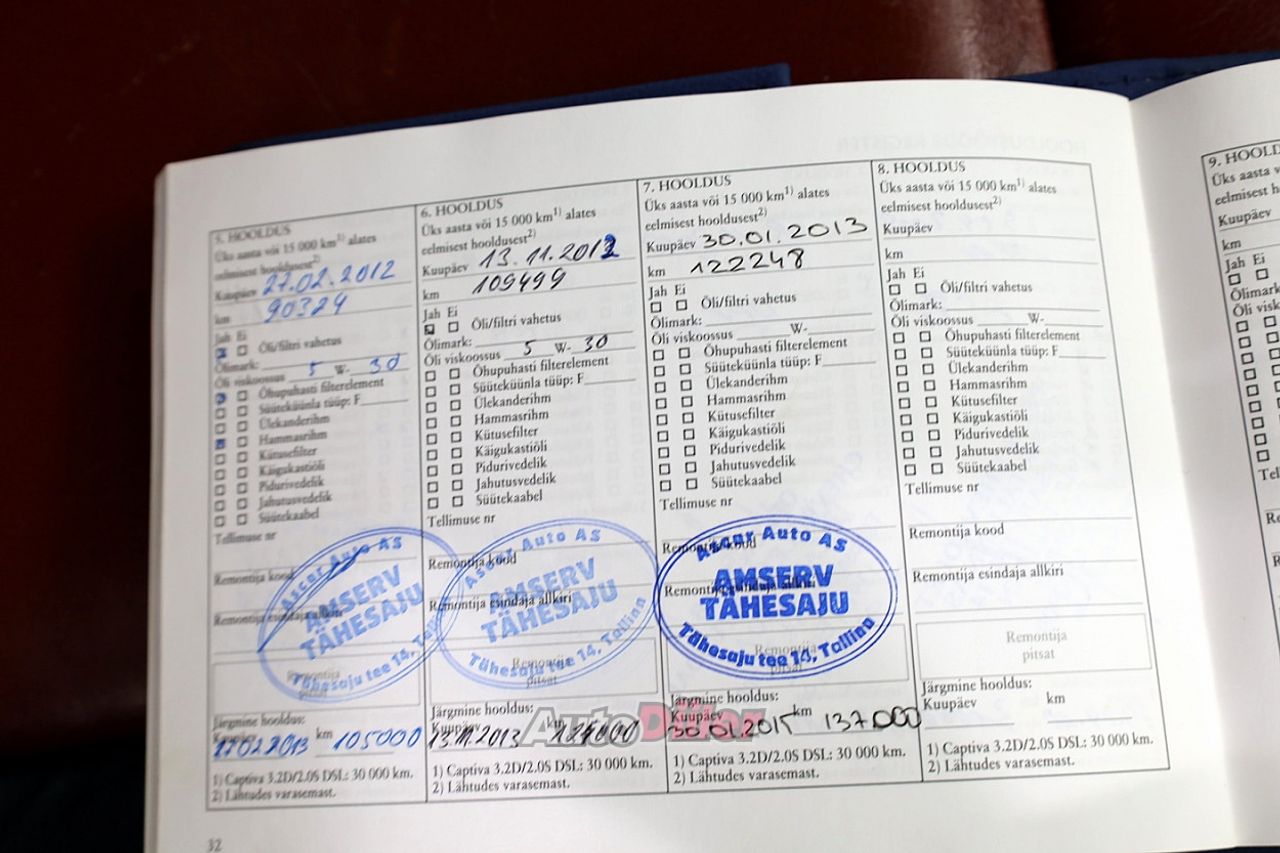 5. HOOLDUS
Üks aasta või 15 000 km1) alates
eelmisest hooldusest2)
Kuupäev 27.02.2012
km 90324
Jah Ei
Õli/filtri vahetus
Õlimark:
Õli viskoossus 5 W- 30
Õhupuhasti filterelement
Süüteküünla tüüp: F
Ülekanderihm
Hammasrihm
Kütusefilter
Käigukastiõli
Pidurivedelik
Jahutusvedelik
Süütekaabel
Tellimuse nr
Remontija kood
Remontija esindaja allkiri
Ascar Auto AS
AMSERV
TÄHESAJU
Tähesaju tee 14,
Remontija
pitsat
Järgmine hooldus:
Kuupäev km
105000
1) Captiva 3.2D/2.0S DSL: 30 000 km.
2) Lähtudes varasemast.
32
6. HOOLDUS
Üks aasta või 15 000 km1) alates
eelmisest hooldusest2)
Kuupäev 13.11.2012
km 109499
Jah Ei
Õli/filtri vahetus
Õlimark:
Õli viskoossus 5 W- 30
Õhupuhasti filterelement
Süüteküünla tüüp: F
Ülekanderihm
Hammasrihm
Kütusefilter
Käigukastiõli
Pidurivedelik
Jahutusvedelik
Süütekaabel
Tellimuse nr
Remontija kood
Remontija esindaja allkiri
Ascar Auto AS
AMSERV
TÄHESAJU
Tähesaju tee 14, Tallinn
Remontija
pitsat
Järgmine hooldus:
Kuupäev km
13.11.2013
1) Captiva 3.2D/2.0S DSL: 30 000 km.
2) Lähtudes varasemast.
7. HOOLDUS
Üks aasta või 15 000 km1) alates
eelmisest hooldusest2)
Kuupäev 30.01.2013
km 122248
Jah Ei
Õli/filtri vahetus
Õlimark:
Õli viskoossus W-
Õhupuhasti filterelement
Süüteküünla tüüp: F
Ülekanderihm
Hammasrihm
Kütusefilter
Käigukastiõli
Pidurivedelik
Jahutusvedelik
Süütekaabel
Tellimuse nr
Remontija kood
Remontija esindaja allkiri
Ascar Auto AS
AMSERV
TÄHESAJU
Tähesaju tee 14, Tallinn
Remontija
pitsat
Järgmine hooldus:
Kuupäev km
30.01.2015 137000
1) Captiva 3.2D/2.0S DSL: 30 000 km.
2) Lähtudes varasemast.
8. HOOLDUS
Üks aasta või 15 000 km1) alates
eelmisest hooldusest2)
Kuupäev
km
Jah Ei
Õli/filtri vahetus
Õlimark:
Õli viskoossus W-
Õhupuhasti filterelement
Süüteküünla tüüp: F
Ülekanderihm
Hammasrihm
Kütusefilter
Käigukastiõli
Pidurivedelik
Jahutusvedelik
Süütekaabel
Tellimuse nr
Remontija kood
Remontija esindaja allkiri
Remontija
pitsat
Järgmine hooldus:
Kuupäev km
1) Captiva 3.2D/2.0S DSL: 30 000 km.
2) Lähtudes varasemast.
9.
Üks aasta
eelmisest
Kuupäev
km
Jah Ei
Õlimark
Õli
AutoDiiler